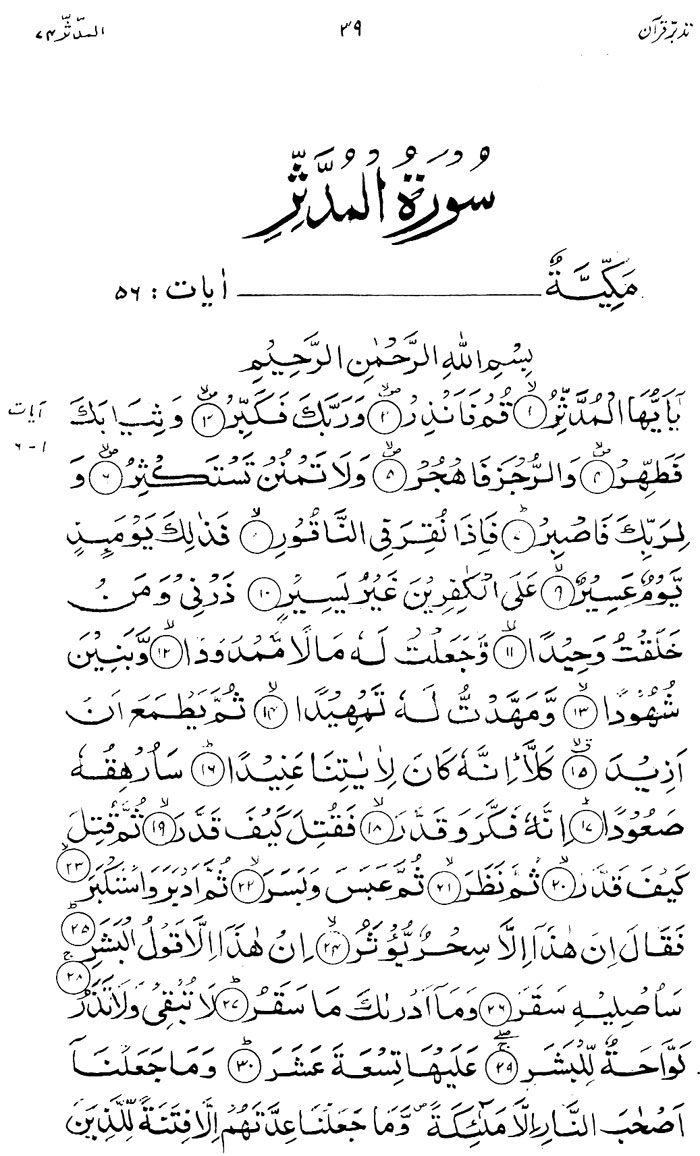 تدبّرِ قرآن ۳۹ المدّثّر ۷۴
سُوْرَةُ الْمُدَّثِّرِ
مَكِّيَّةٌ ـــــــ اٰيات : ۵۶
بِسْمِ اللّٰهِ الرَّحْمٰنِ الرَّحِيْمِ
يٰٓاَيُّهَا الْمُدَّثِّرُ ۙ﴿۱﴾ قُمْ فَاَنْذِرْ ۪ۙ﴿۲﴾ وَرَبَّكَ فَكَبِّرْ ۪ۙ﴿۳﴾ وَثِيَابَكَ
اٰيات
۱-۶
فَطَهِّرْ ۪ۙ﴿۴﴾ وَالرُّجْزَ فَاهْجُرْ ۪ۙ﴿۵﴾ وَلَا تَمْنُنْ تَسْتَكْثِرُ ۪ۙ﴿۶﴾ وَ
لِرَبِّكَ فَاصْبِرْ ؕ﴿۷﴾ فَاِذَا نُقِرَ فِى النَّاقُوْرِ ۙ﴿۸﴾ فَذٰلِكَ يَوْمَئِذٍ
يَّوْمٌ عَسِيْرٌ ۙ﴿۹﴾ عَلَى الْكٰفِرِيْنَ غَيْرُ يَسِيْرٍ ﴿۱۰﴾ ذَرْنِىْ وَمَنْ
خَلَقْتُ وَحِيْدًا ۙ﴿۱۱﴾ وَّجَعَلْتُ لَهٗ مَالًا مَّمْدُوْدًا ۙ﴿۱۲﴾ وَّبَنِيْنَ
شُهُوْدًا ۙ﴿۱۳﴾ وَّمَهَّدْتُّ لَهٗ تَمْهِيْدًا ۙ﴿۱۴﴾ ثُمَّ يَطْمَعُ اَنْ
اَزِيْدَ ۙ﴿۱۵﴾ كَلَّا ؕ اِنَّهٗ كَانَ لِاٰيٰتِنَا عَنِيْدًا ؕ﴿۱۶﴾ سَاُرْهِقُهٗ
صَعُوْدًا ؕ﴿۱۷﴾ اِنَّهٗ فَكَّرَ وَقَدَّرَ ۙ﴿۱۸﴾ فَقُتِلَ كَيْفَ قَدَّرَ ۙ﴿۱۹﴾ ثُمَّ قُتِلَ
كَيْفَ قَدَّرَ ۙ﴿۲۰﴾ ثُمَّ نَظَرَ ۙ﴿۲۱﴾ ثُمَّ عَبَسَ وَبَسَرَ ۙ﴿۲۲﴾ ثُمَّ اَدْبَرَ وَاسْتَكْبَرَ ۙ﴿۲۳﴾
فَقَالَ اِنْ هٰذَآ اِلَّا سِحْرٌ يُّؤْثَرُ ۙ﴿۲۴﴾ اِنْ هٰذَآ اِلَّا قَوْلُ الْبَشَرِ ؕ﴿۲۵﴾
سَاُصْلِيْهِ سَقَرَ ﴿۲۶﴾ وَمَآ اَدْرٰىكَ مَا سَقَرُ ؕ﴿۲۷﴾ لَا تُبْقِىْ وَلَا تَذَرُ ۚ﴿۲۸﴾
لَوَّاحَةٌ لِّلْبَشَرِ ۚۖ﴿۲۹﴾ عَلَيْهَا تِسْعَةَ عَشَرَ ؕ﴿۳۰﴾ وَمَا جَعَلْنَآ
اَصْحٰبَ النَّارِ اِلَّا مَلٰٓئِكَةً ۪ وَّمَا جَعَلْنَا عِدَّتَهُمْ اِلَّا فِتْنَةً لِّلَّذِيْنَ